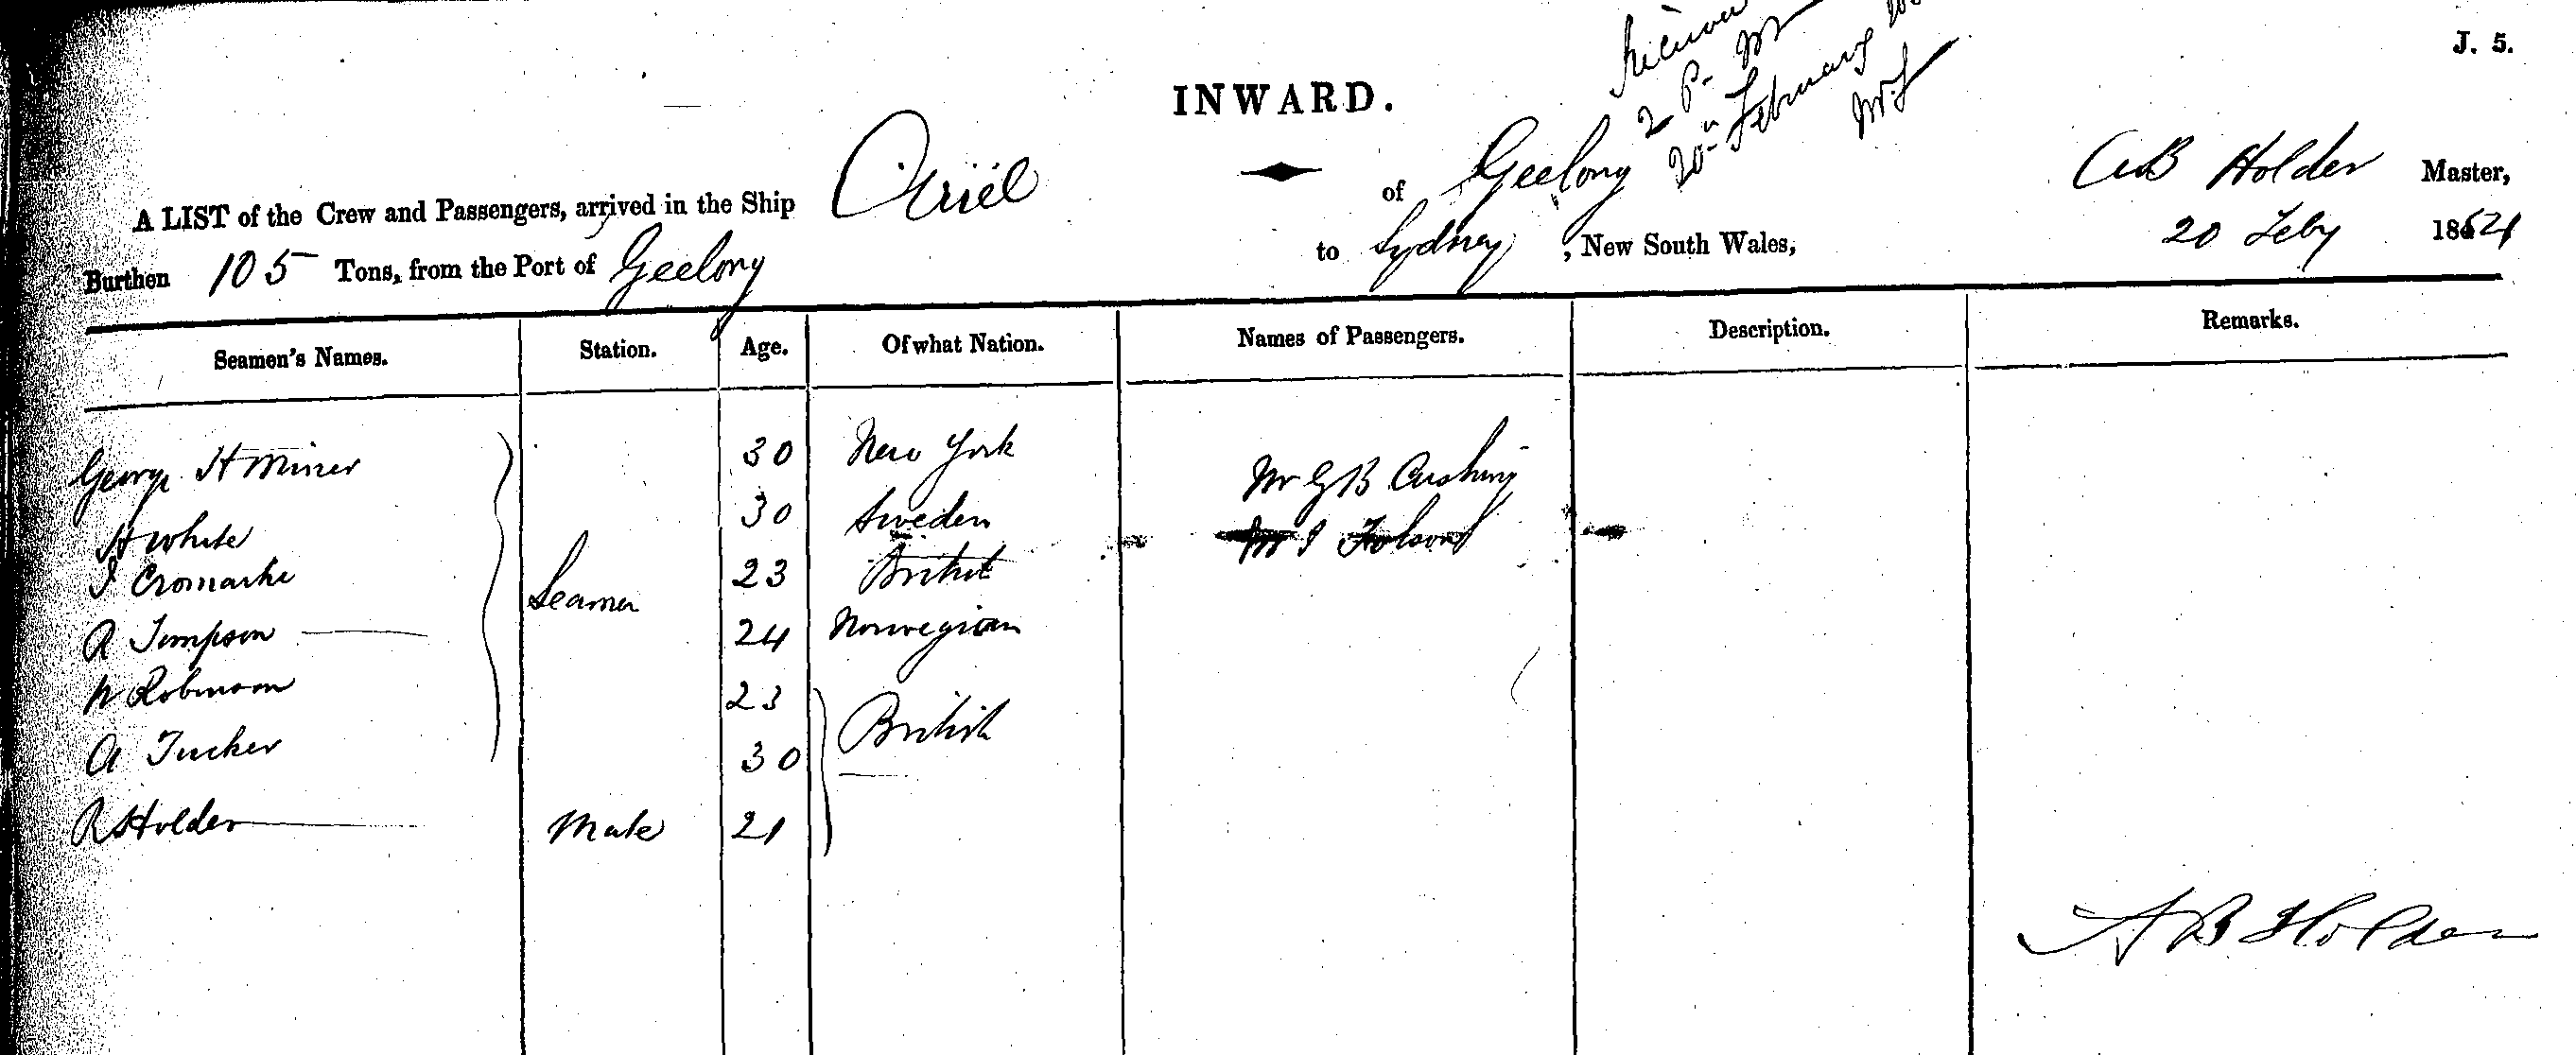 J. 5.
INWARD.
2 P. M
20 February
A LIST of the Crew and Passengers, arrived in the Ship Ariel of Geelong A B Holder Master,
Burthen 105 Tons, from the Port of Geelong to Sydney, New South Wales, 20 Feby 185
Seamen's Names. Station. Age. Of what Nation. Names of Passengers. Description. Remarks.
George H Miner 30 New York Mr G B Cushing
H White 30 Sweden
J Cromartie 23 British
Seamen
R Simpson 24 Norwegian
W Robinson 23
British
A Tucker 30
R Holder Mate 21
A B Holder